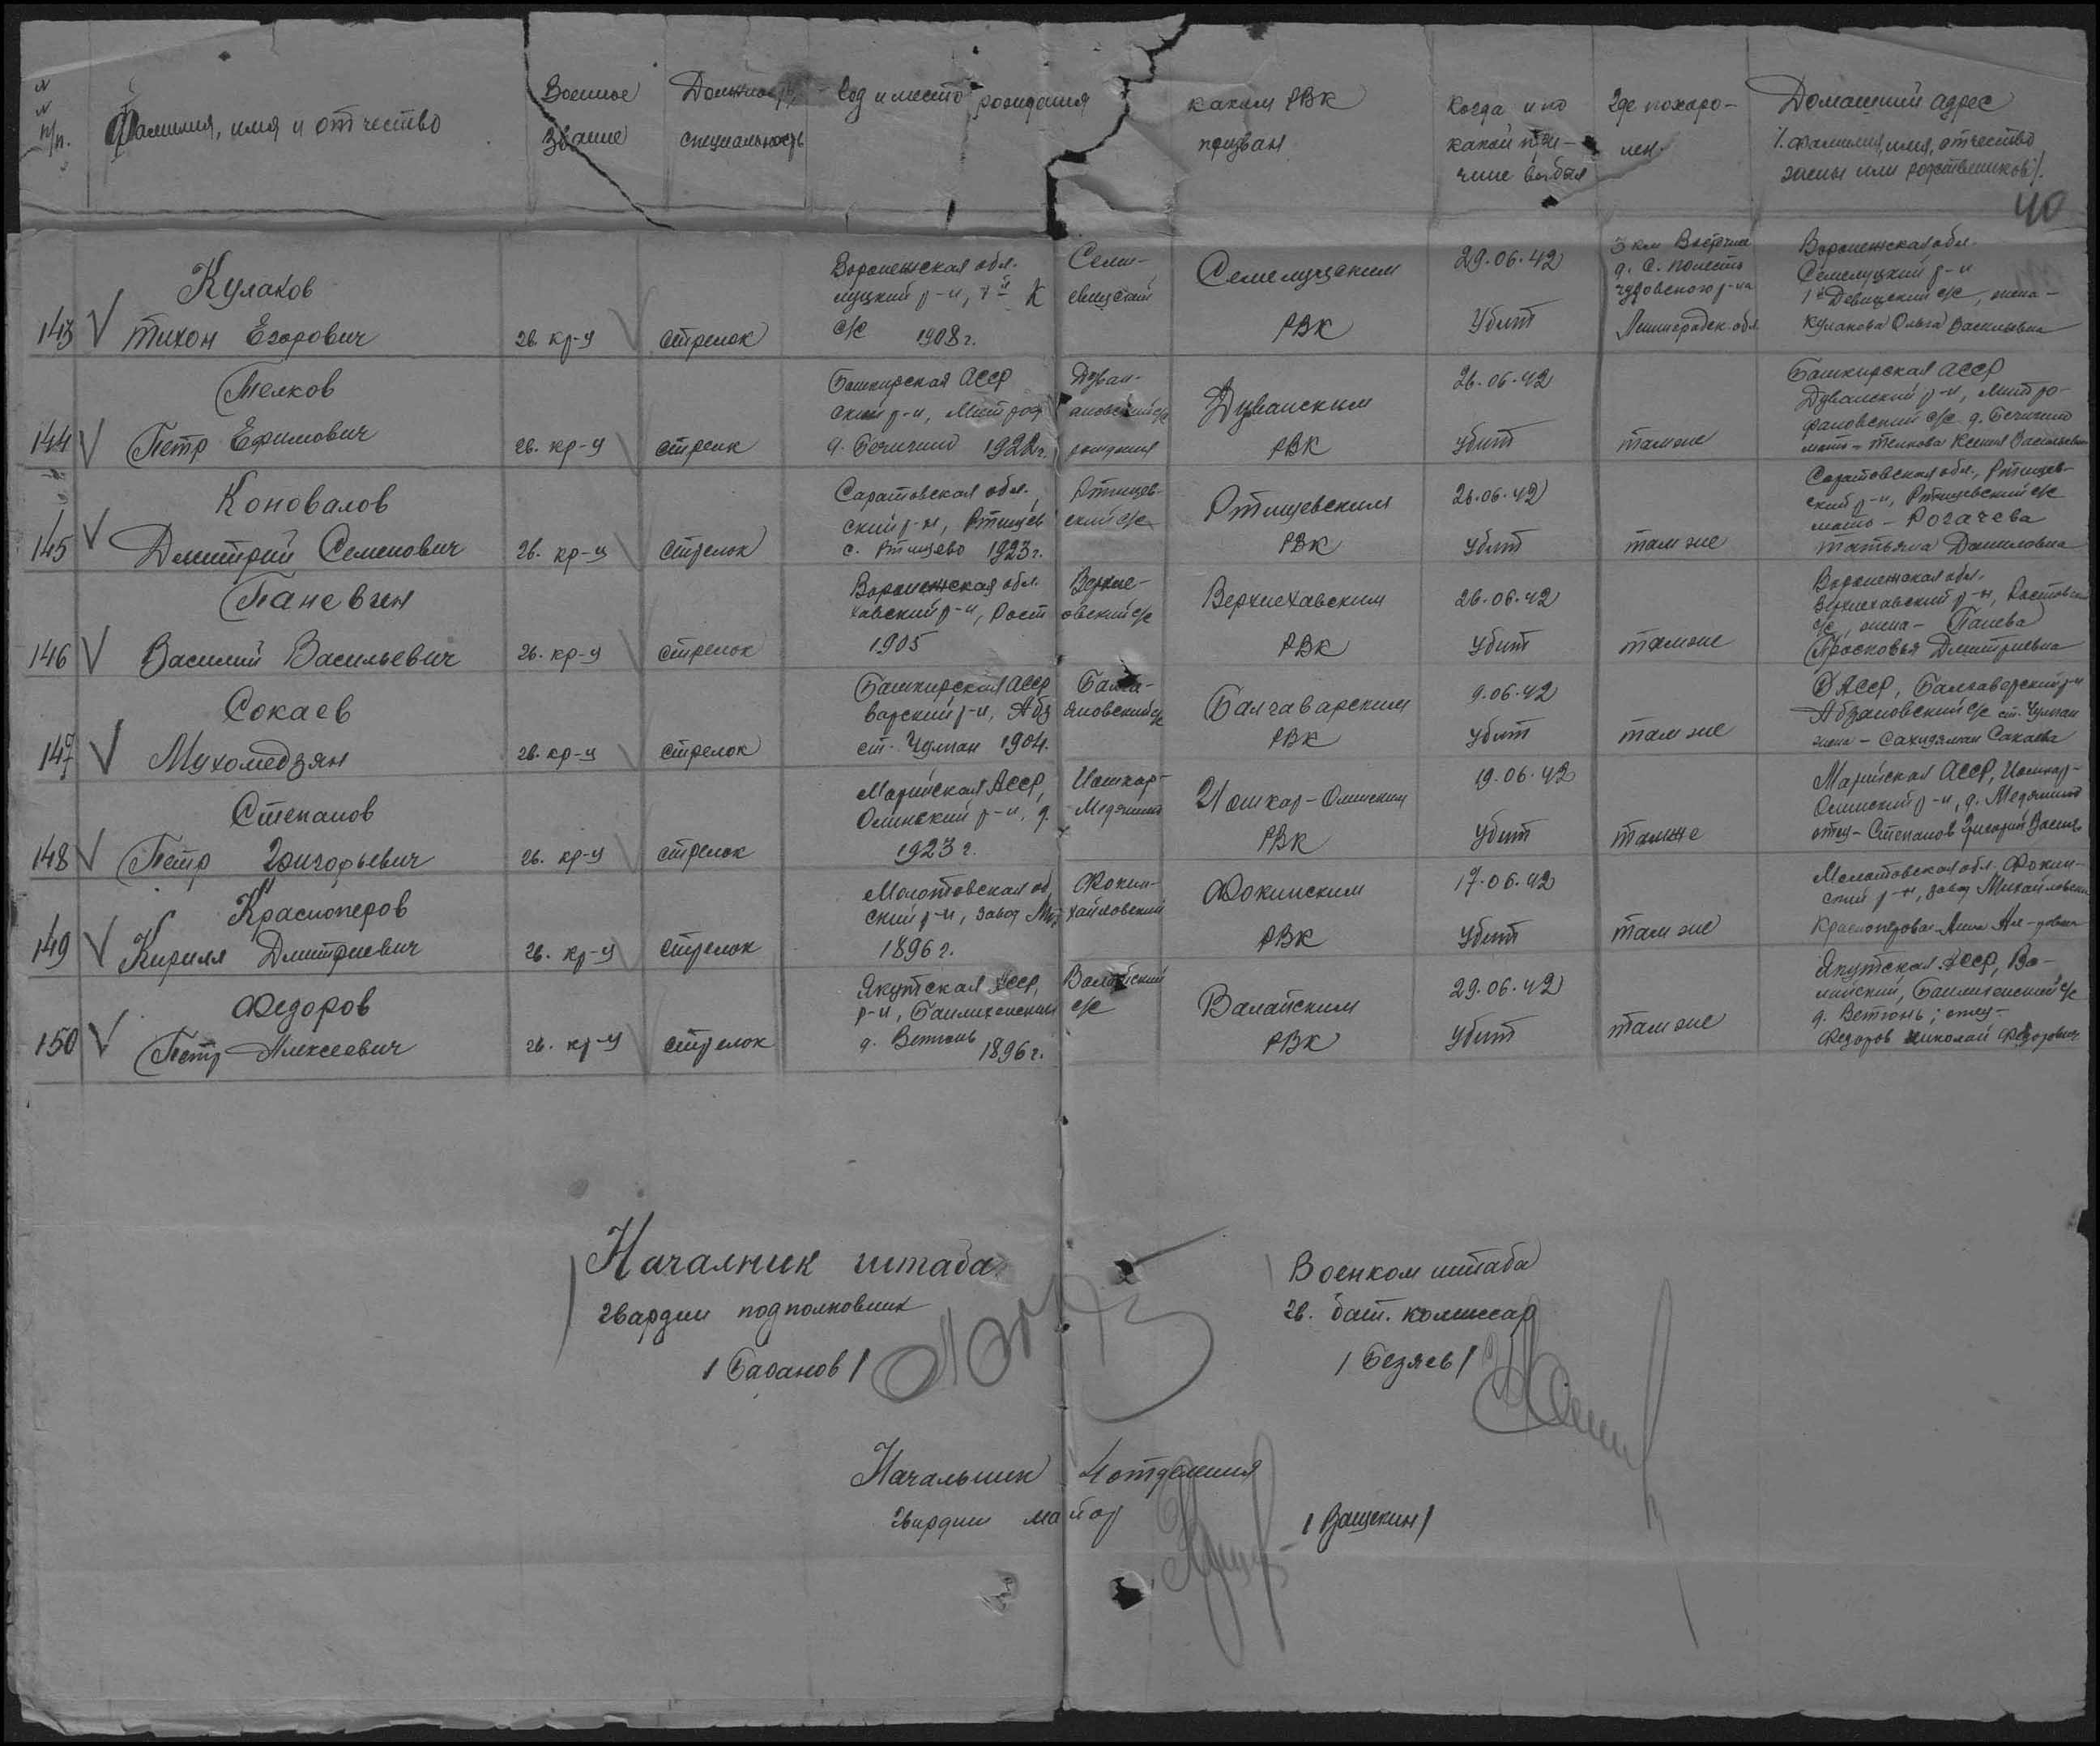 № № п/п.
Фамилия, имя и отчество
Военное звание
Должность, специальность
Год и место рождения
каким РВК призван
Когда и по какой при-
чине выбыл
Где похоро-
нен
Домашний адрес
/. фамилия, имя, отчество
жены или родственников/.
40
143 Кулаков
Тихон Егорович
гв. кр-ц
стрелок
Воронежская обл. Семи-
луцкий р-н, 1й
с/с 1908 г.
Семелуцким
РВК
29.06.42
Убит
3 км Восточне
д. С. Полесть
чудовского р-на
Ленинградск. обл.
Воронежская обл.
Семелуцкий р-н
1й Девицский с/с, жена -
Кулакова Ольга Васильевна
144 Телков
Петр Ефимович
гв. кр-ц
стрелк
Башкирская АССР Дуван-
ский р-н, Митроф ановский с/с
д. Бечичино 1922 г. рождения
Дуванским
РВК
26.06.42
убит
там же
Башкирская АССР
Дуванский р-н, Митро-
фановский с/с д. Бечичино
мать - Телкова Ксения Васильевна
145 Коновалов
Дмитрий Семенович
гв. кр-ц
стрелок
Саратовская обл., Ртищев-
ский р-н, Ртищев ский с/с
с. Ртищево 1923 г.
Ртищевским
РВК
26.06.42
убит
там же
Саратовская обл., Ртищев-
ский р-н, Ртищевский с/с
мать - Рогачева
Татьяна Даниловна
146 Паневин
Василий Васильевич
гв. кр-ц
стрелок
Воронежская обл. Верхне-
хавский р-н, Рост овский с/с
1905
Верхнехавским
РВК
26.06.42
убит
там же
Воронежская обл.
Верхнехавский р-н, Ростовский
с/с, жена - Панева
Прасковья Дмитриевна
147 Сокаев
Мухомедзян
гв. кр-ц
стрелок
Башкирская АССР
варский р-н, Абз ановский с/с
ст. Чулпан 1904.
Балгаварским
РВК
9.06.42
убит
там же
БАССР, Балгаварский р-н
Абзановский с/с ст. Чулпан
жена - Сакаева
148 Степанов
Петр Григорьевич
гв. кр-ц
стрелок
Марийская АССР, Иошкар-
Олинский р-н, д. Медянино
1923 г.
Иошкар-Олинским
РВК
19.06.42
убит
там же
Марийская АССР, Иошкар-
Олинский р-н, д. Медянино
отец - Степанов Григорий
149 Красноперов
Кирилл Дмитриевич
гв. кр-ц
стрелок
Молотовская об. Фокин-
ский р-н, завод Ми хайловский
1896 г.
Фокинским
РВК
17.06.42
убит
там же
Молотовская обл. Фокин-
ский р-н, завод Михайловский
Красноперова Анна
150 Федоров
Петр Алексеевич
гв. кр-ц
стрелок
Якутская АССР,
р-н, с/с
д. Ветконь 1896 г.
Валайским
РВК
29.06.42
убит
там же
Якутская АССР, Ва-
лайский, с/с
отец -
Федоров Николай Федорович
Началник штаба
гвардии подполковник
/ Баранов /
Военком штаба
гв. бат. комиссар
/ Безяев /
Начальник 4 отделения
гвардии майор
/ Ващекин /